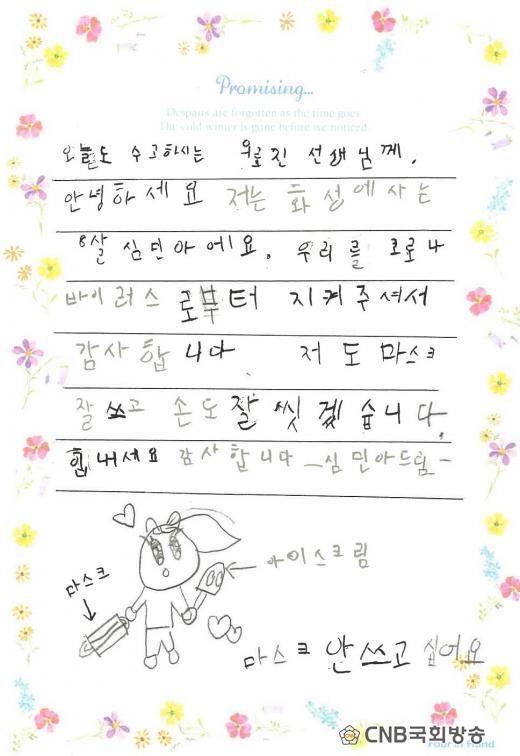 Promising...
Despairs are forgotten as the time goes.
The cold winter is gone before we noticed.
오늘도 수고하시는 우료진 선생님께.
안녕하세요 저는 화성에사는
8살 심민아에요. 우리를 코로나
바이러스 로부터 지켜주셔서
감사합니다 저도 마스크
잘 쓰고 손도 잘 씻겠습니다.
힘내세요 감사합니다 -심민아드림-
아이스크림
마스크
마스크 안쓰고 싶어요
CNB국회방송